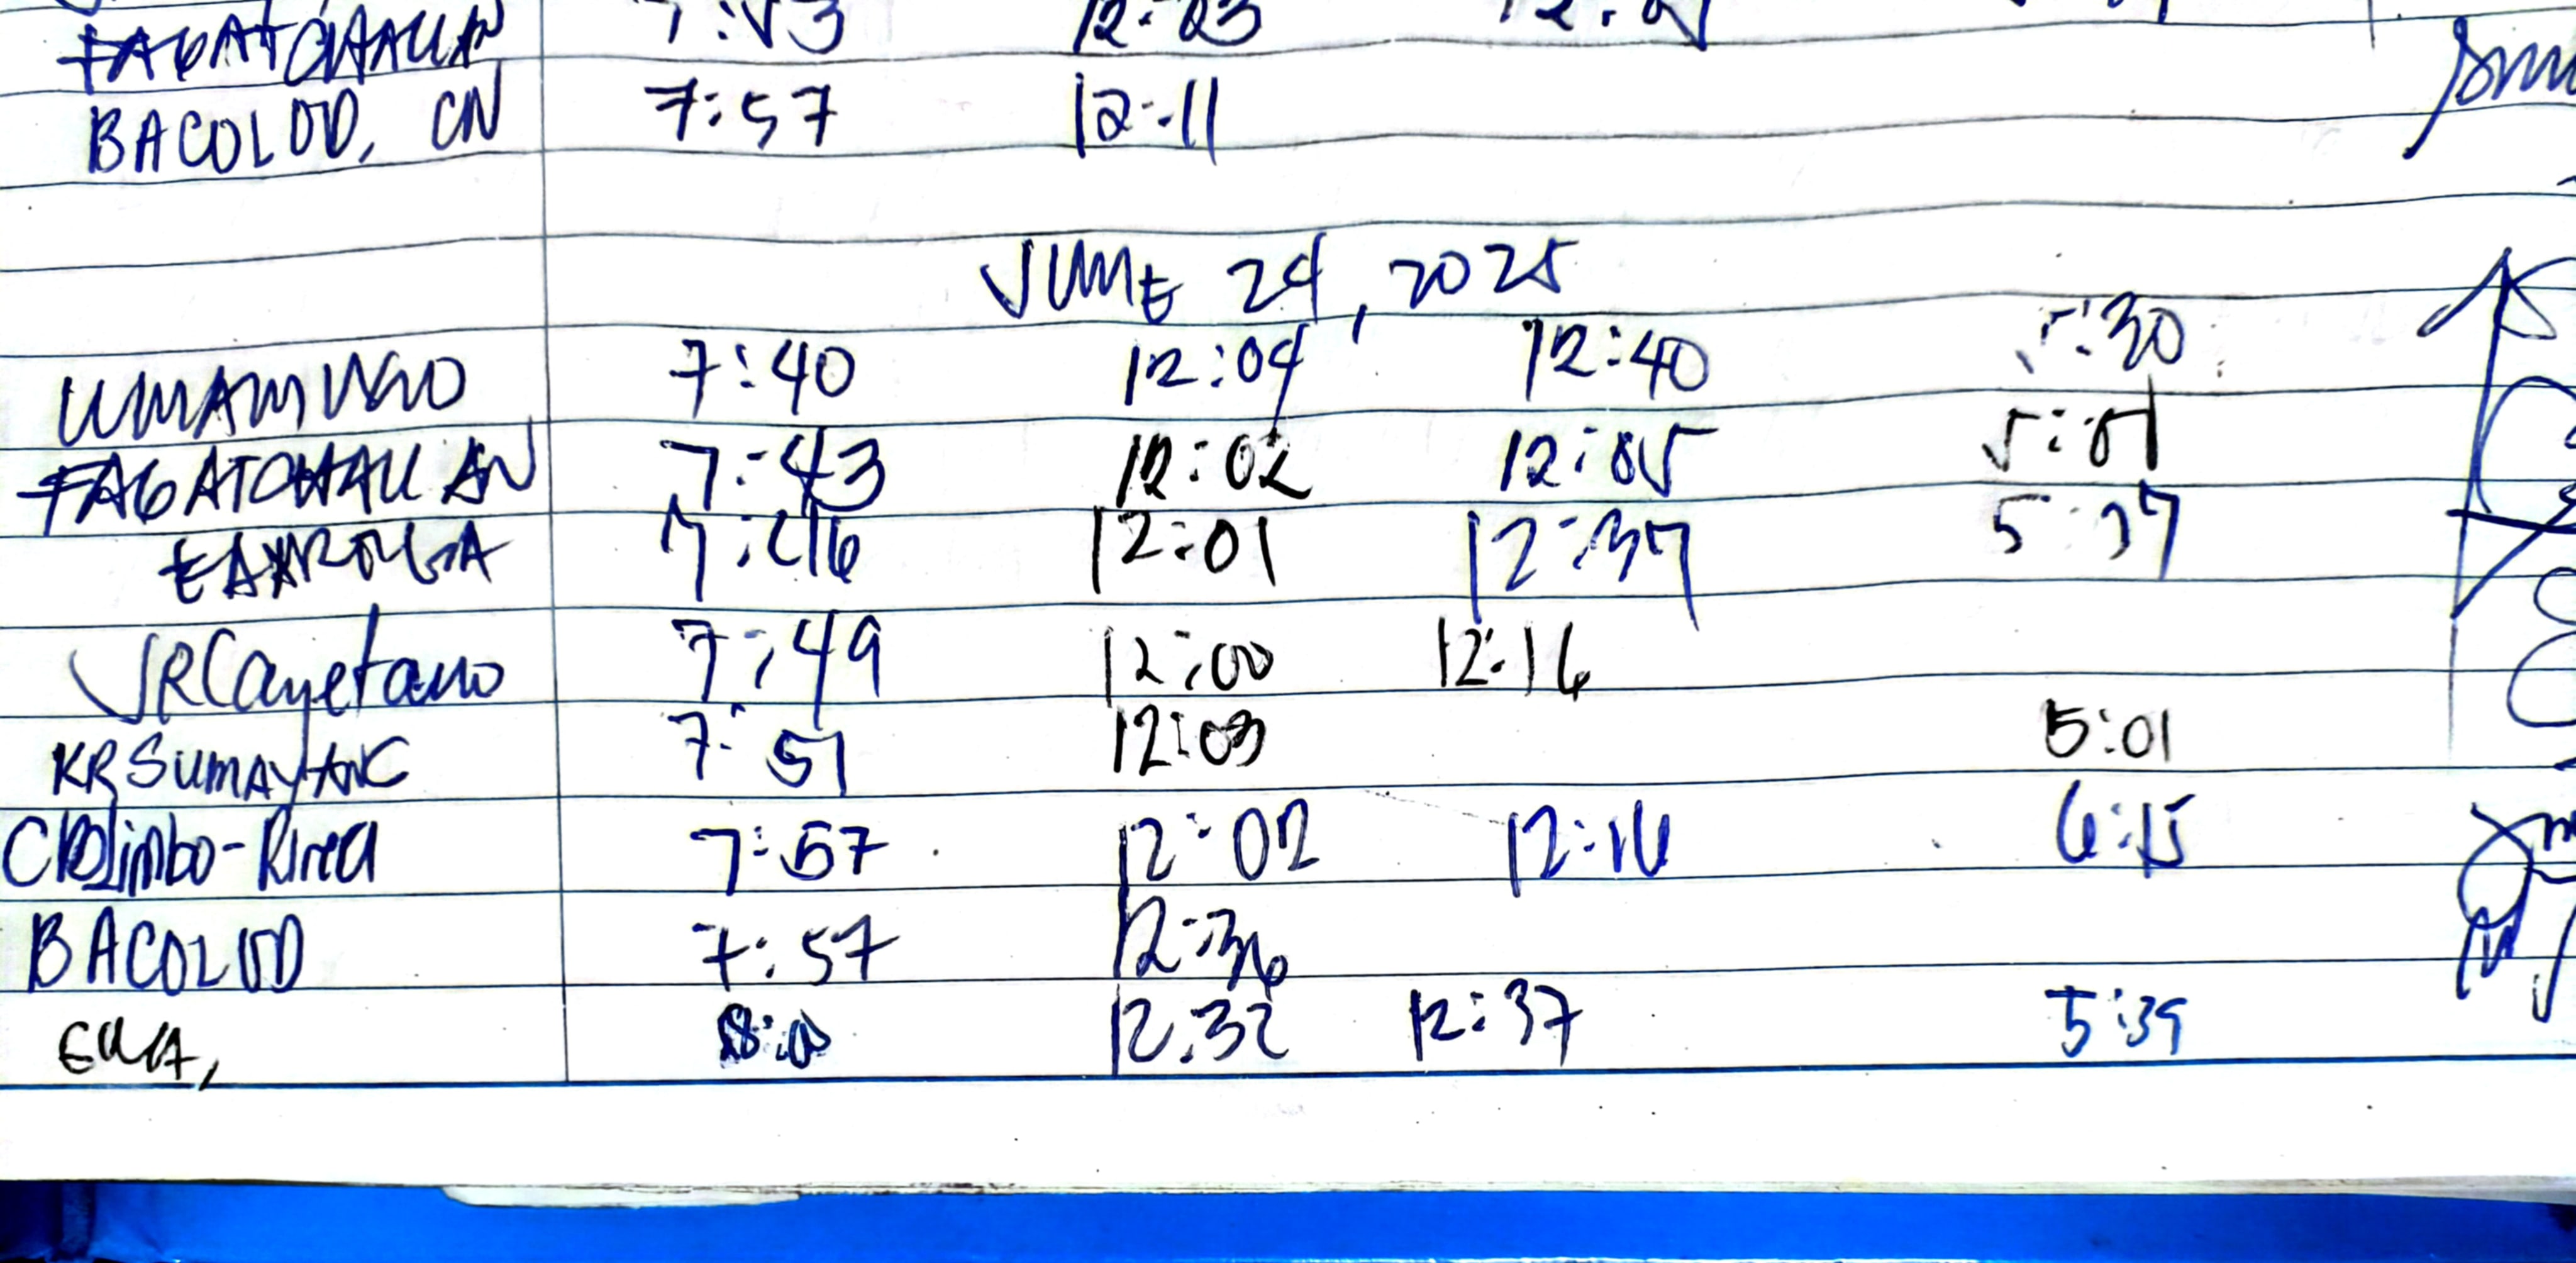 FAGATCHALLAN 7:53 12:03
BACOLOD, CN 7:57 12:11
JUNE 24, 2025
UMAMING 7:40 12:04 12:40 5:30
FAGATCHALLAN 7:43 12:02 12:05 5:01
7:46 12:01 12:37 5:37
JRCayetano 7:49 12:00 12:16
KRSUMAYANG 7:51 12:03 5:01
7:57 12:02 12:16 6:15
BACOLOD 7:57 12:36
8:00 12:32 12:37 5:39